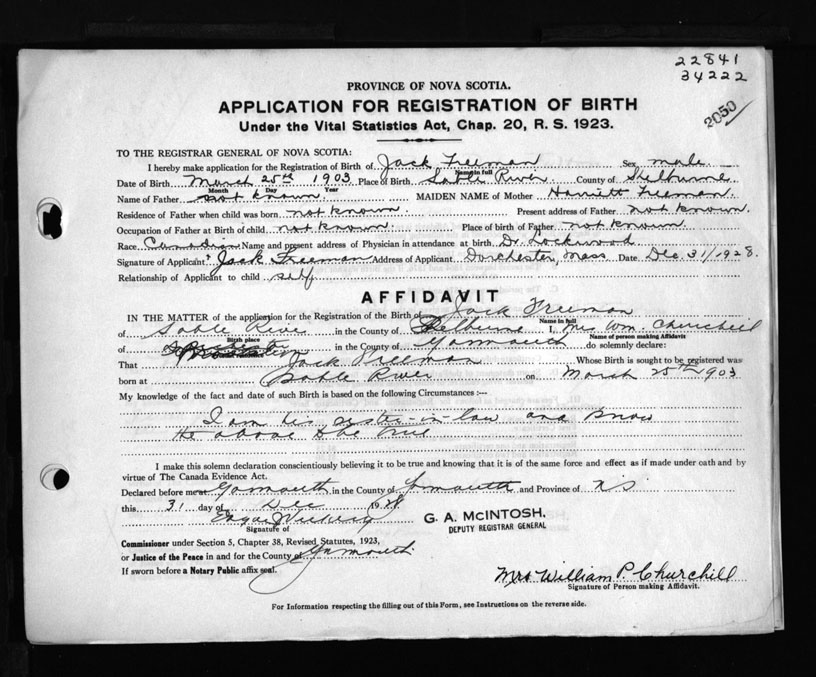 22841
34222
2050
PROVINCE OF NOVA SCOTIA.
APPLICATION FOR REGISTRATION OF BIRTH
Under the Vital Statistics Act, Chap. 20, R. S. 1923.
TO THE REGISTRAR GENERAL OF NOVA SCOTIA:
I hereby make application for the Registration of Birth of Jack Freeman Sex male
Name in full
Date of Birth March 25th 1903 Place of Birth Sable River County of Shelburne
Month Day Year
Name of Father not known. MAIDEN NAME of Mother Harriett Freeman.
Residence of Father when child was born not known. Present address of Father not known.
Occupation of Father at Birth of child not known. Place of birth of Father not known
Race Canadian Name and present address of Physician in attendance at birth Dr. Lockwood
Signature of Applicant Jack Freeman Address of Applicant Dorchester, Mass Date Dec. 31/1928.
Relationship of Applicant to child self
AFFIDAVIT
IN THE MATTER of the application for the Registration of the Birth of Jack Freeman
Name in full
of Sable River in the County of Shelburne I, Mrs Wm. Churchill
Birth place Name of person making Affidavit
of in the County of Yarmouth do solemnly declare:
That Jack Freeman Whose Birth is sought to be registered was
born at Sable River on March 25th 1903
My knowledge of the fact and date of such Birth is based on the following Circumstances :—
I am his sister-in-law and know
the above to be true
I make this solemn declaration conscientiously believing it to be true and knowing that it is of the same force and effect as if made under oath and by
virtue of The Canada Evidence Act.
Declared before me at Yarmouth in the County of Yarmouth and Province of N S
this 31 day of Dec 1928
G. A. McINTOSH.
DEPUTY REGISTRAR GENERAL
Signature of
Commissioner under Section 5, Chapter 38, Revised Statutes, 1923,
or Justice of the Peace in and for the County of Yarmouth.
If sworn before a Notary Public affix seal.
Mrs William P. Churchill
Signature of Person making Affidavit.
For Information respecting the filling out of this Form, see Instructions on the reverse side.